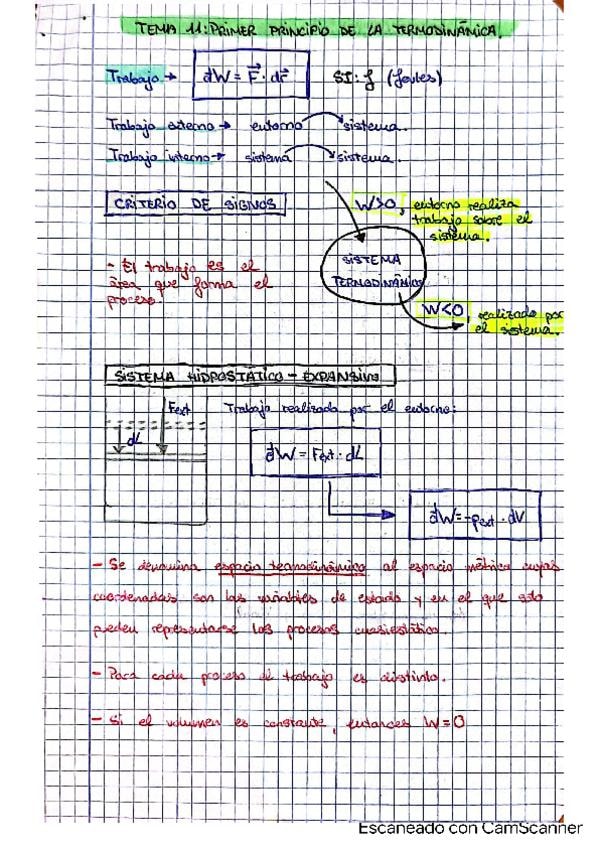 TEMA 11: PRIMER PRINCIPIO DE LA TERMODINÁMICA.
Trabajo → đW = F⃗ · dr⃗ SI: J (Joules)
Trabajo externo → entorno sistema.
Trabajo interno → sistema sistema.
CRITERIO DE SIGNOS
W>0, entorno realiza
trabajo sobre el
sistema.
- El trabajo es el
área que forma el
proceso!
SISTEMA
TERMODINÁMICO
W<0, realizado por
el sistema.
SISTEMA HIDROSTÁTICO - EXPANSIVO
Fext
dL
Trabajo realizado por el entorno:
đW = Fext · dL
đW = -pext · dV
- Se denomina espacio termodinámico al espacio métrico cuyas
coordenadas son las variables de estado y en el que solo
pueden representarse los procesos cuasiestáticos.
- Para cada proceso el trabajo es distinto.
- Si el volumen es constante, entonces W=0
Escaneado con CamScanner